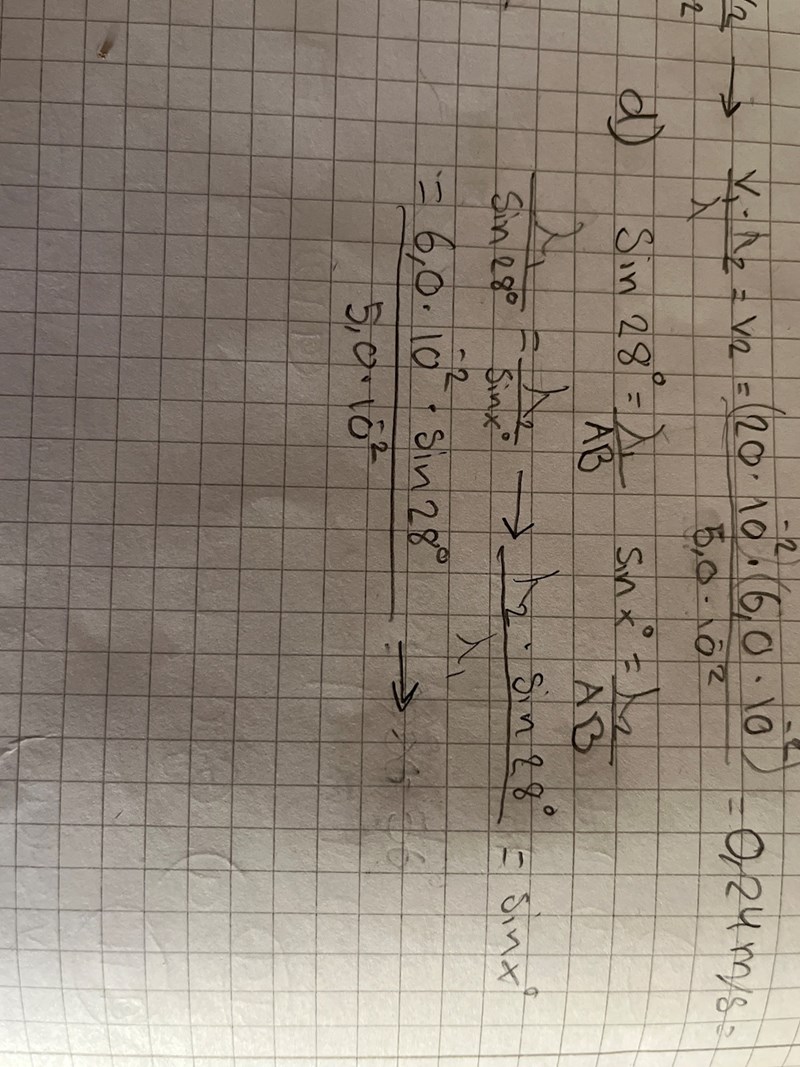 → v₁·λ₂/λ = v₂ = (20·10⁻²)·(6,0·10⁻²)/5,0·10⁻² = 0,24 m/s =
d) Sin 28° = λ₁/AB sin x° = λ₂/AB
λ₁/Sin 28° = λ₂/Sin x° → λ₂·Sin 28°/λ₁ = Sin x°
= 6,0·10⁻²·Sin 28°/5,0·10⁻² →